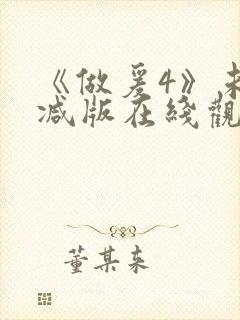 《做爰4》未
减版在綫觀
董某来